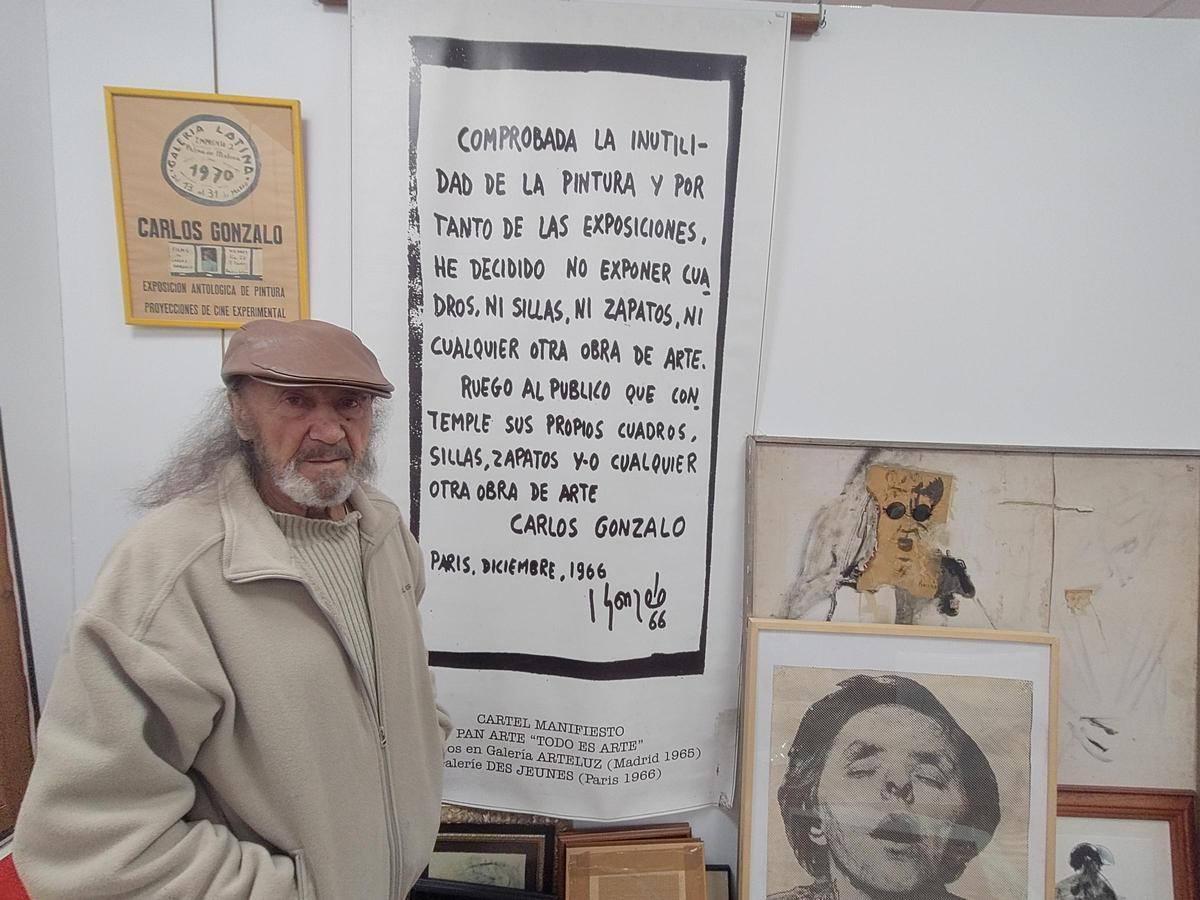 GALERIA LATINA
1970
del 13 al 31 de
CARLOS GONZALO
EXPOSICION ANTOLOGICA DE PINTURA
PROYECCIONES DE CINE EXPERIMENTAL
COMPROBADA LA INUTILI-
DAD DE LA PINTURA Y POR
TANTO DE LAS EXPOSICIONES,
HE DECIDIDO NO EXPONER CUA
DROS, NI SILLAS, NI ZAPATOS, NI
CUALQUIER OTRA OBRA DE ARTE.
RUEGO AL PUBLICO QUE CON
TEMPLE SUS PROPIOS CUADROS,
SILLAS, ZAPATOS Y-O CUALQUIER
OTRA OBRA DE ARTE
CARLOS GONZALO
PARIS, DICIEMBRE, 1966
Gonzalo
66
CARTEL MANIFIESTO
PAN ARTE "TODO ES ARTE"
os en Galería ARTELUZ (Madrid 1965)
alerie DES JEUNES (Paris 1966)